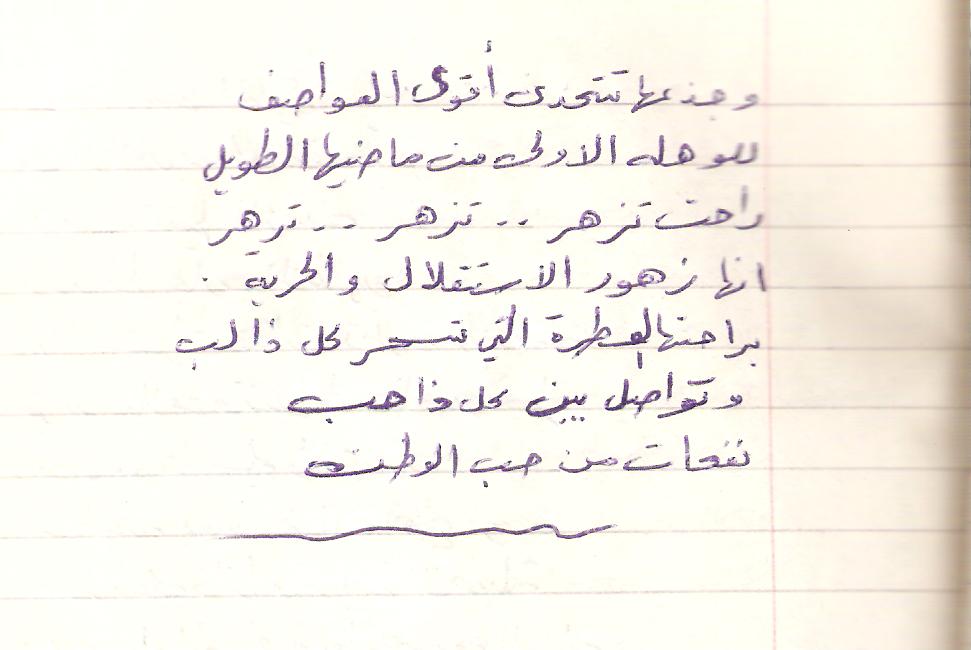 وجذعها تتحدى أقوى العواصف
للوهله الاولى من ماضيها الطويل
راحت تزهر .. تزهر .. تزهر
انها زهور الاستقلال والحرية .
براحتها العطرة التي تسحر كل ذا لب
وتواصل بين كل ذا حب
نفحات من حب الوطن